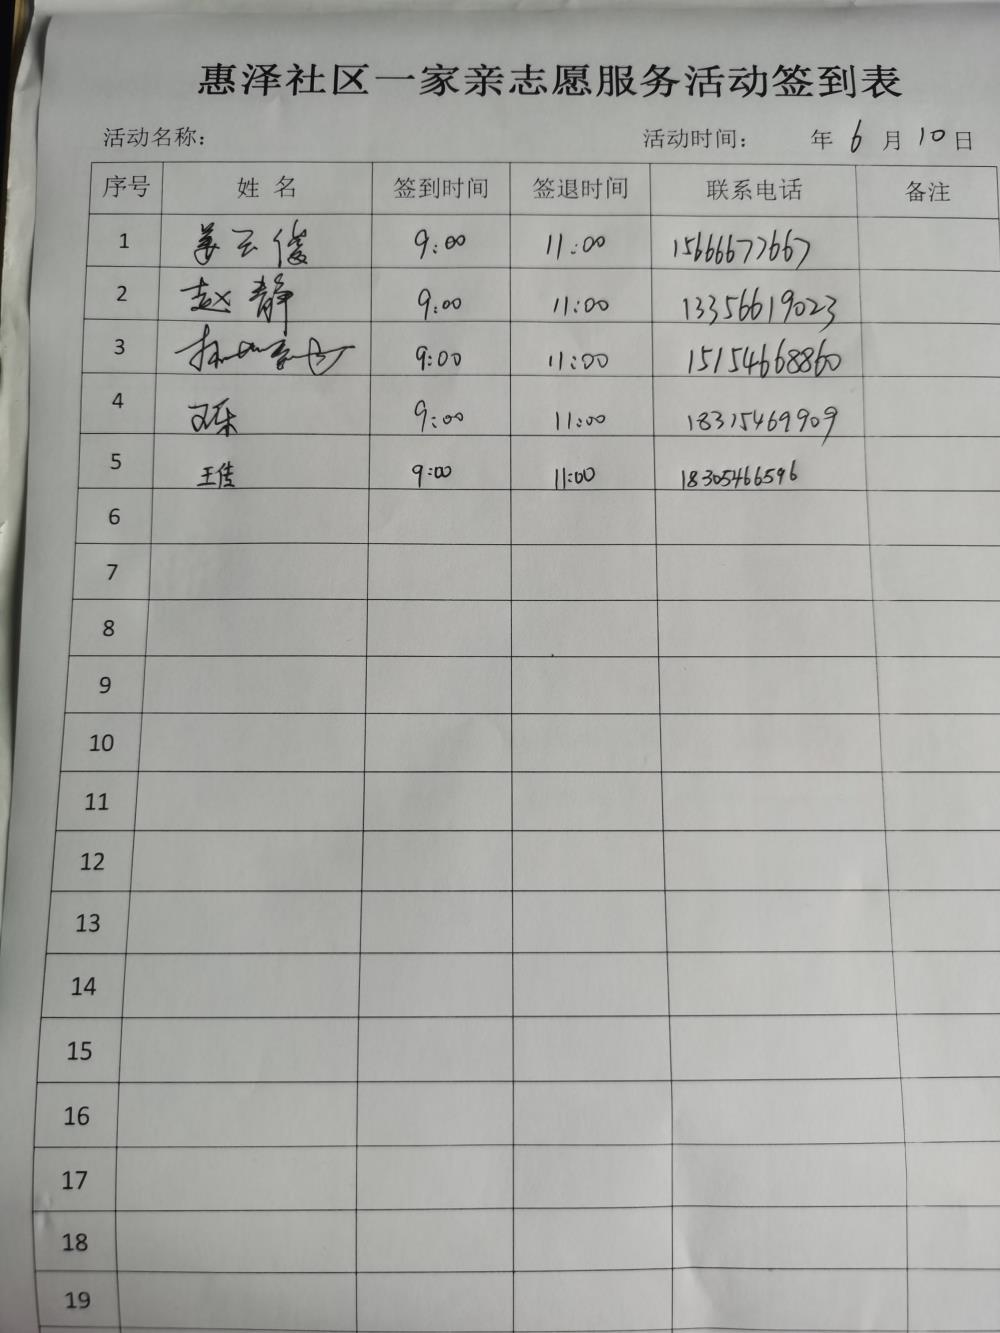 惠泽社区一家亲志愿服务活动签到表
活动名称： 活动时间： 年 6 月 10 日
序号 姓 名 签到时间 签退时间 联系电话 备注
1 姜云俊 9:00 11:00 15666677667
2 赵静 9:00 11:00 13356619023
3 9:00 11:00 15154668860
4 9:00 11:00 18315469909
5 王佳 9:00 11:00 18305466596
6
7
8
9
10
11
12
13
14
15
16
17
18
19